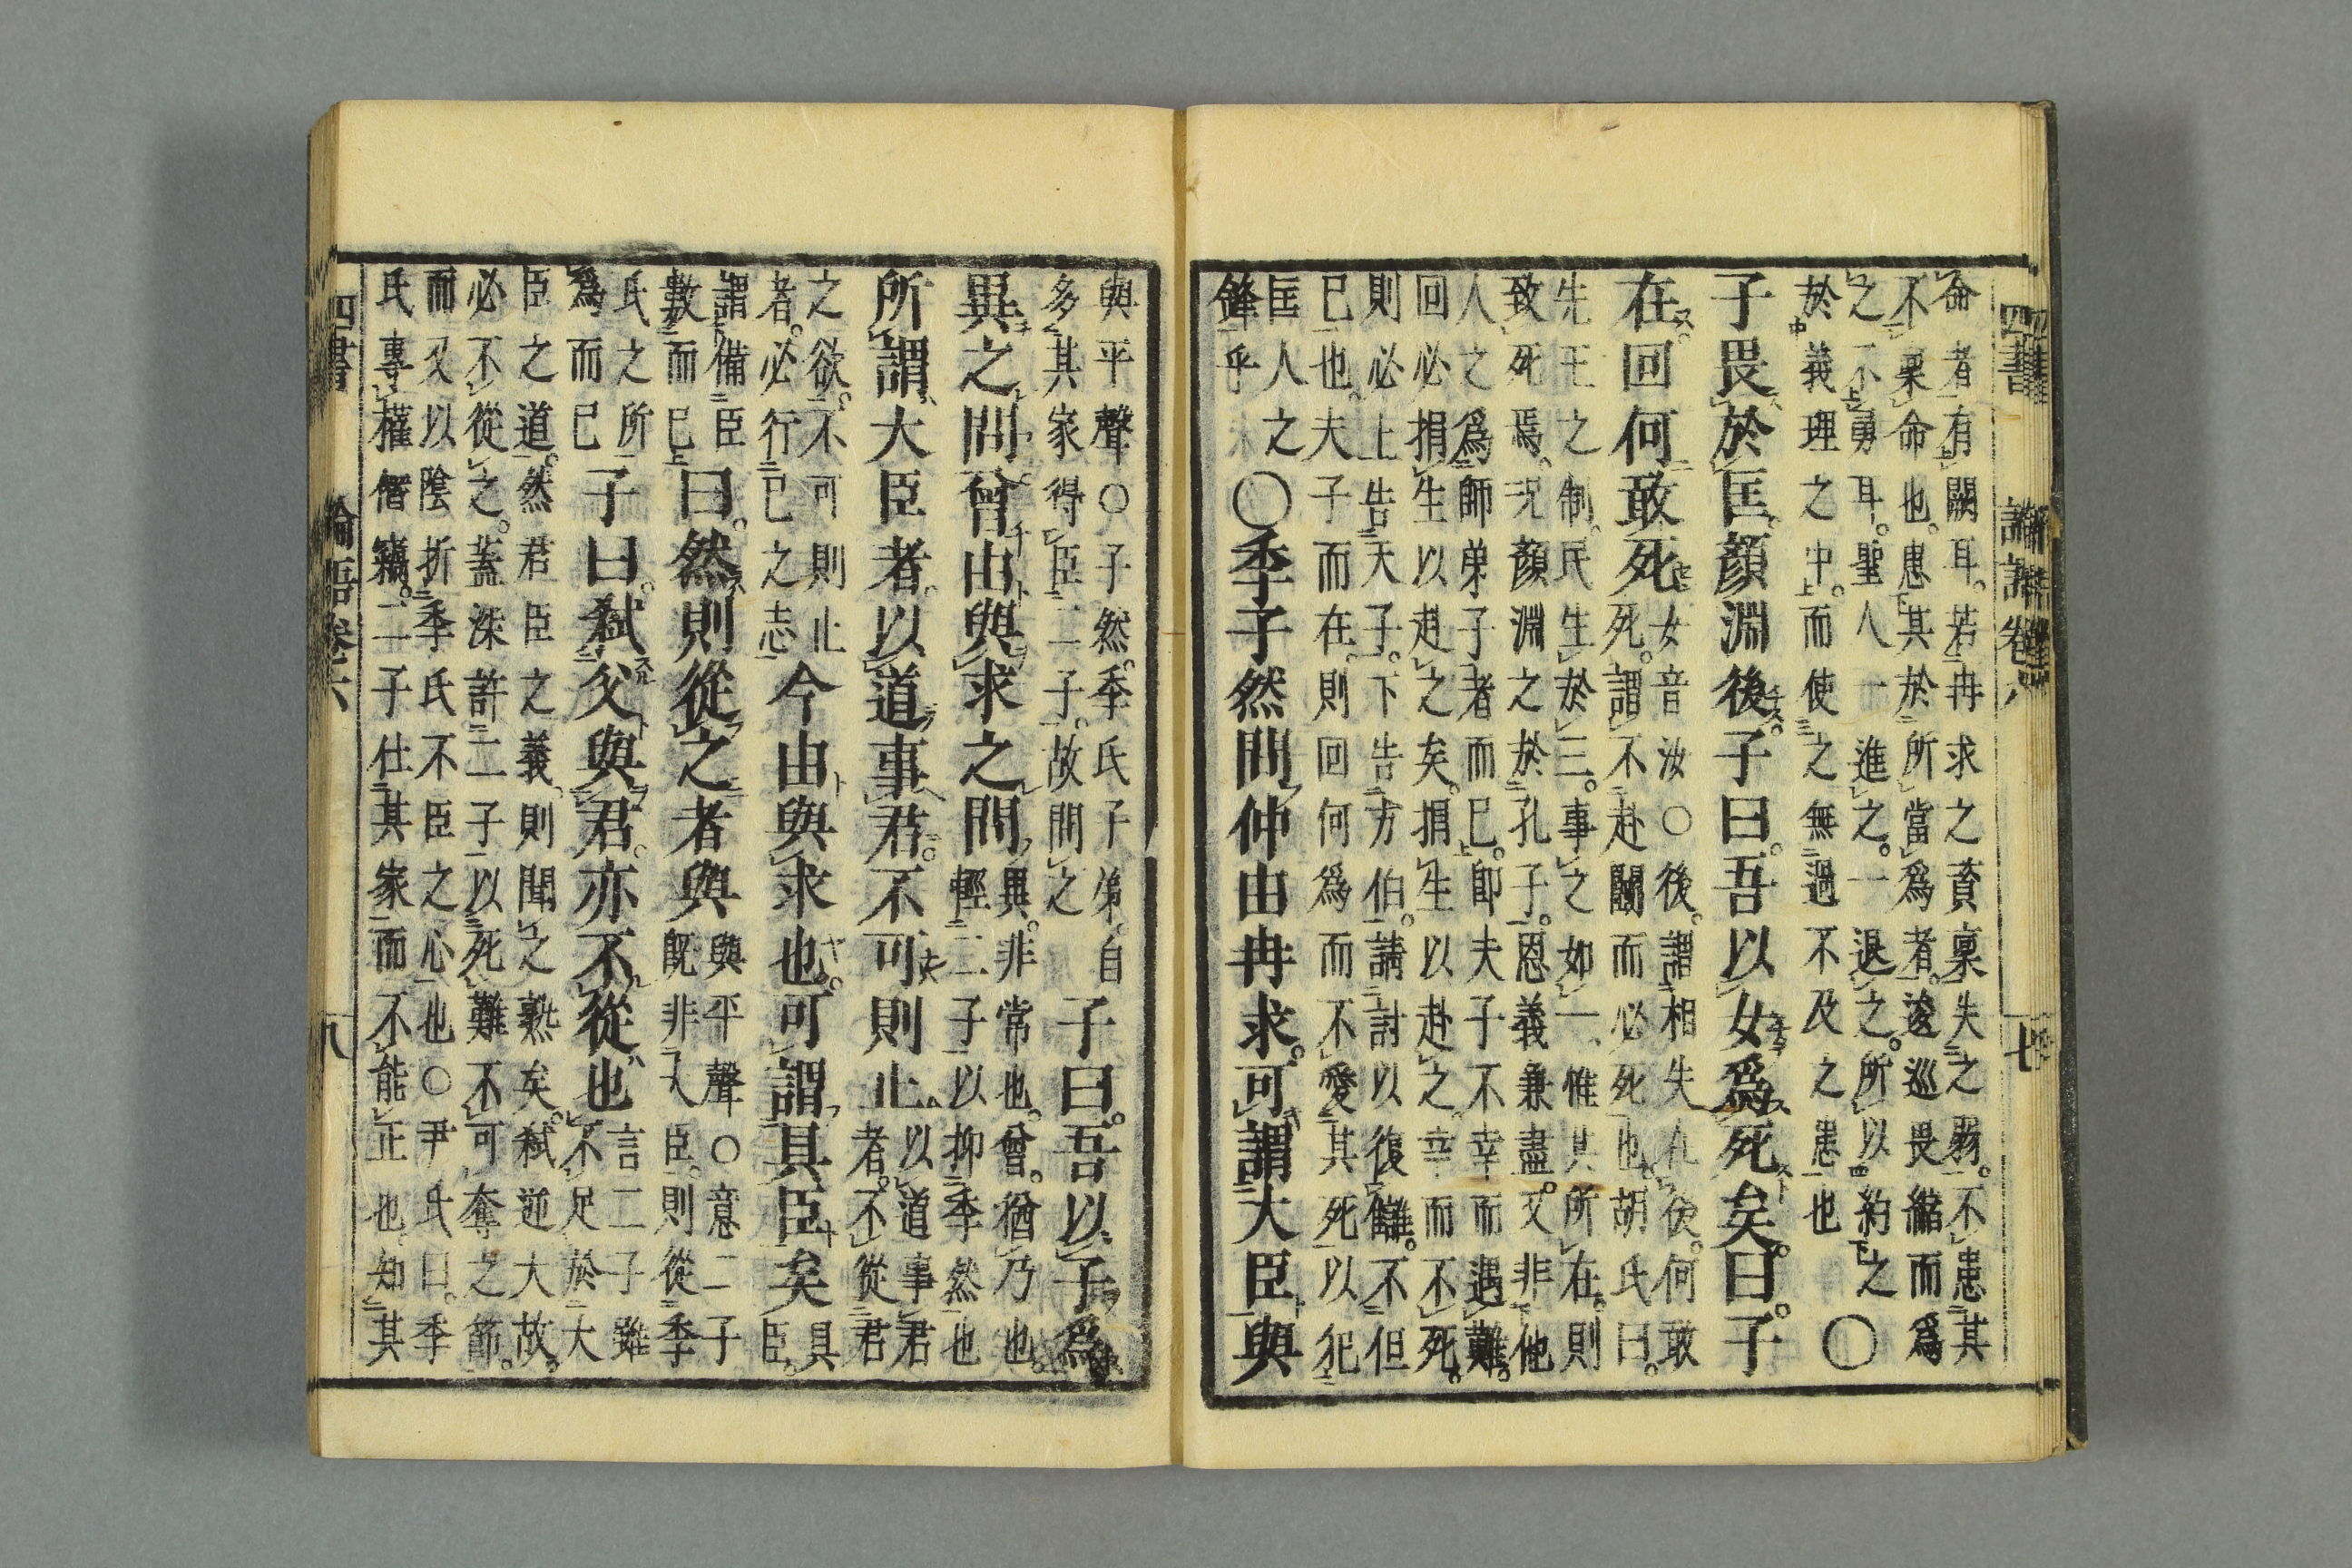 四書　論語卷六　七
命者有闕耳。若冉求之資稟失之弱。不患其
不稟命也。患其於所當爲者。逡巡畏縮而爲
之不勇耳。聖人一進之。一退之。所以約之
於義理之中。而使之無過不及之患也
○
子畏於匡。顏淵後。子曰。吾以女爲死矣。曰。子
在。回何敢死
女音汝○後。謂相失在後。何敢
死。謂不赴鬭而必死也。胡氏曰。
先王之制。民生於三。事之如一。惟其所在。則
致死焉。況顏淵之於孔子。恩義兼盡。又非他
人之爲師弟子者而已。即夫子不幸而遇難。
回必捐生以赴之矣。捐生以赴之。幸而不死。
則必上告天子。下告方伯。請討以復讎。不但
已也。夫子而在。則回何爲而不愛其死。以犯
匡人之
鋒乎
○季子然問仲由冉求。可謂大臣與
與平聲○子然。季氏子弟。自
多其家得臣二子。故問之
子曰。吾以子爲
異之問。曾由與求之問
異。非常也。曾。猶乃也。
輕二子以抑季然也
所謂大臣者。以道事君。不可則止
以道事君
者。不從君
之欲。不可則止
者。必行己之志
今由與求也。可謂具臣矣
具
臣。
謂備臣
數而已
曰。然則從之者與
與平聲○意二子
既非大臣。則從季
氏之所
爲而已
子曰。弑父與君。亦不從也
言二子雖
不足於大
臣之道。然君臣之義。則聞之熟矣。弑逆大故。
必不從之。蓋深許二子以死難不可奪之節。
而又以陰折季氏不臣之心也○尹氏曰。季
氏專權僭竊。二子仕其家而不能正也。知其
四書　論語卷六　八